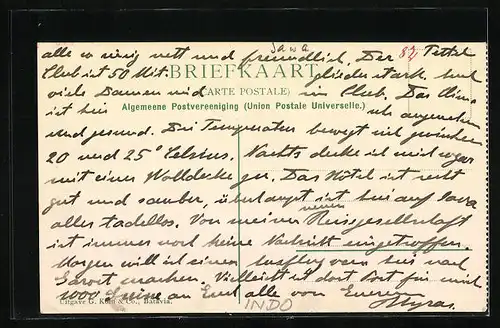 Java
alle so nett und freundlich. Der 82 Tettel
Club ist 50 Mit-
BRIEFKAART
glieder stark und
viele Damen sind im Club. Das Clima
(CARTE POSTALE)
ist hier sehr angenehm
Algemeene Postvereeniging (Union Postale Universelle.)
und gesund. Die Temperatur bewegt sich zwischen
20 und 25° Celsius. Nachts decke ich mich sogar
mit einer Wolldecke zu. Das Hôtel ist recht
gut und sauber, überhaupt ist hier auf Java
alles tadellos. Von meiner neuen Reisegesellschaft
ist immer noch keine Nachricht eingetroffen.
Morgen will ich einen Ausflug von hier nach
Garoet machen. Vielleicht ist dort Post für mich
1000 Grüsse an Euch alle von Eurem
Uitgave G. Kolff & Co., Batavia.
INDO